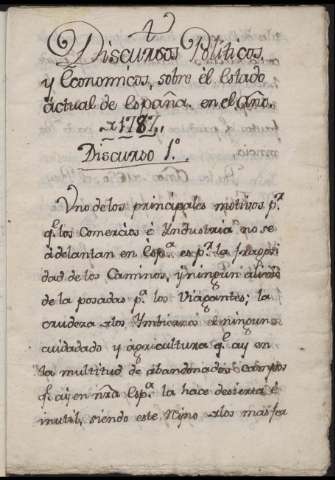 Discursos Politicos,
y Economicos, sobre èl Estado
actual de España. en el Año.
1787.
Discurso 1.º
Uno de los principales motivos p.ª
q.e los Comercios è Yndustria no se
adelantan en Esp.ª es p.r la fragosi
dad de los Caminos, y ningun
de las posadas p.ª los Viagantes; la
crudeza los Ymbiernos el ningun
cuidadado y agricultura q.e ay en
la multitud de abandonados campos
q.e ay en nrã Esp.ª la hace desierta è
inutil, siendo este Rejno los mas fer